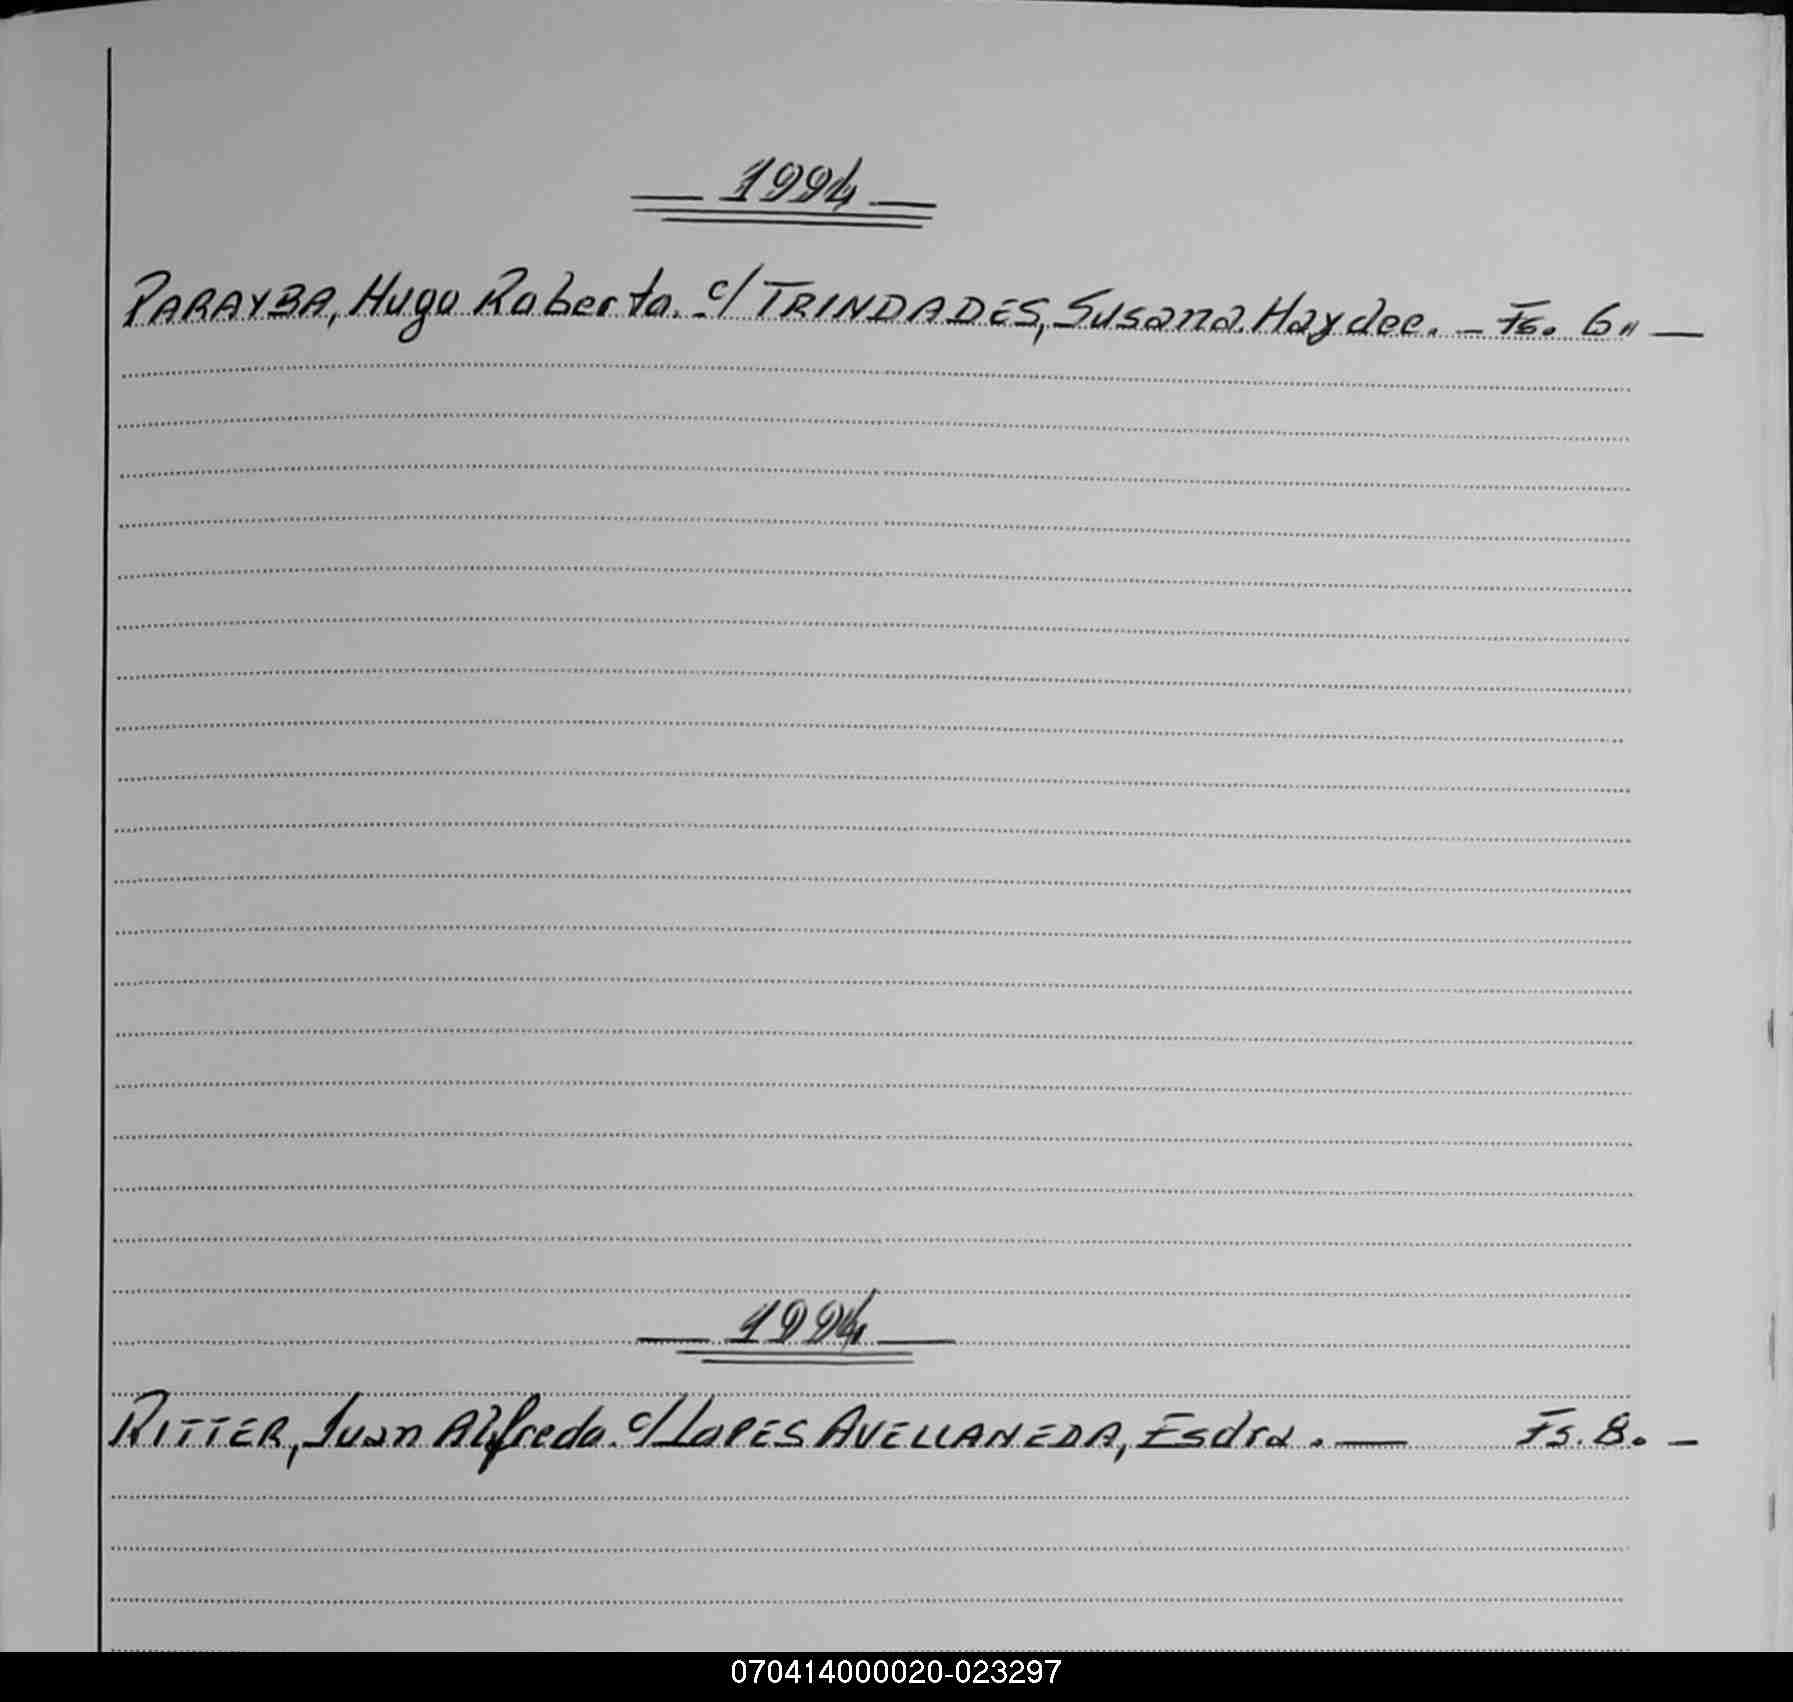 — 1994 —
PARAYBA, Hugo Roberto. c/ TRINDADES, Susana Haydee. — Fs. 6 —
— 1994 —
RITTER, Juan Alfredo. c/ LOPES AVELLANEDA, Esdra. — Fs. 8. —
070414000020-023297